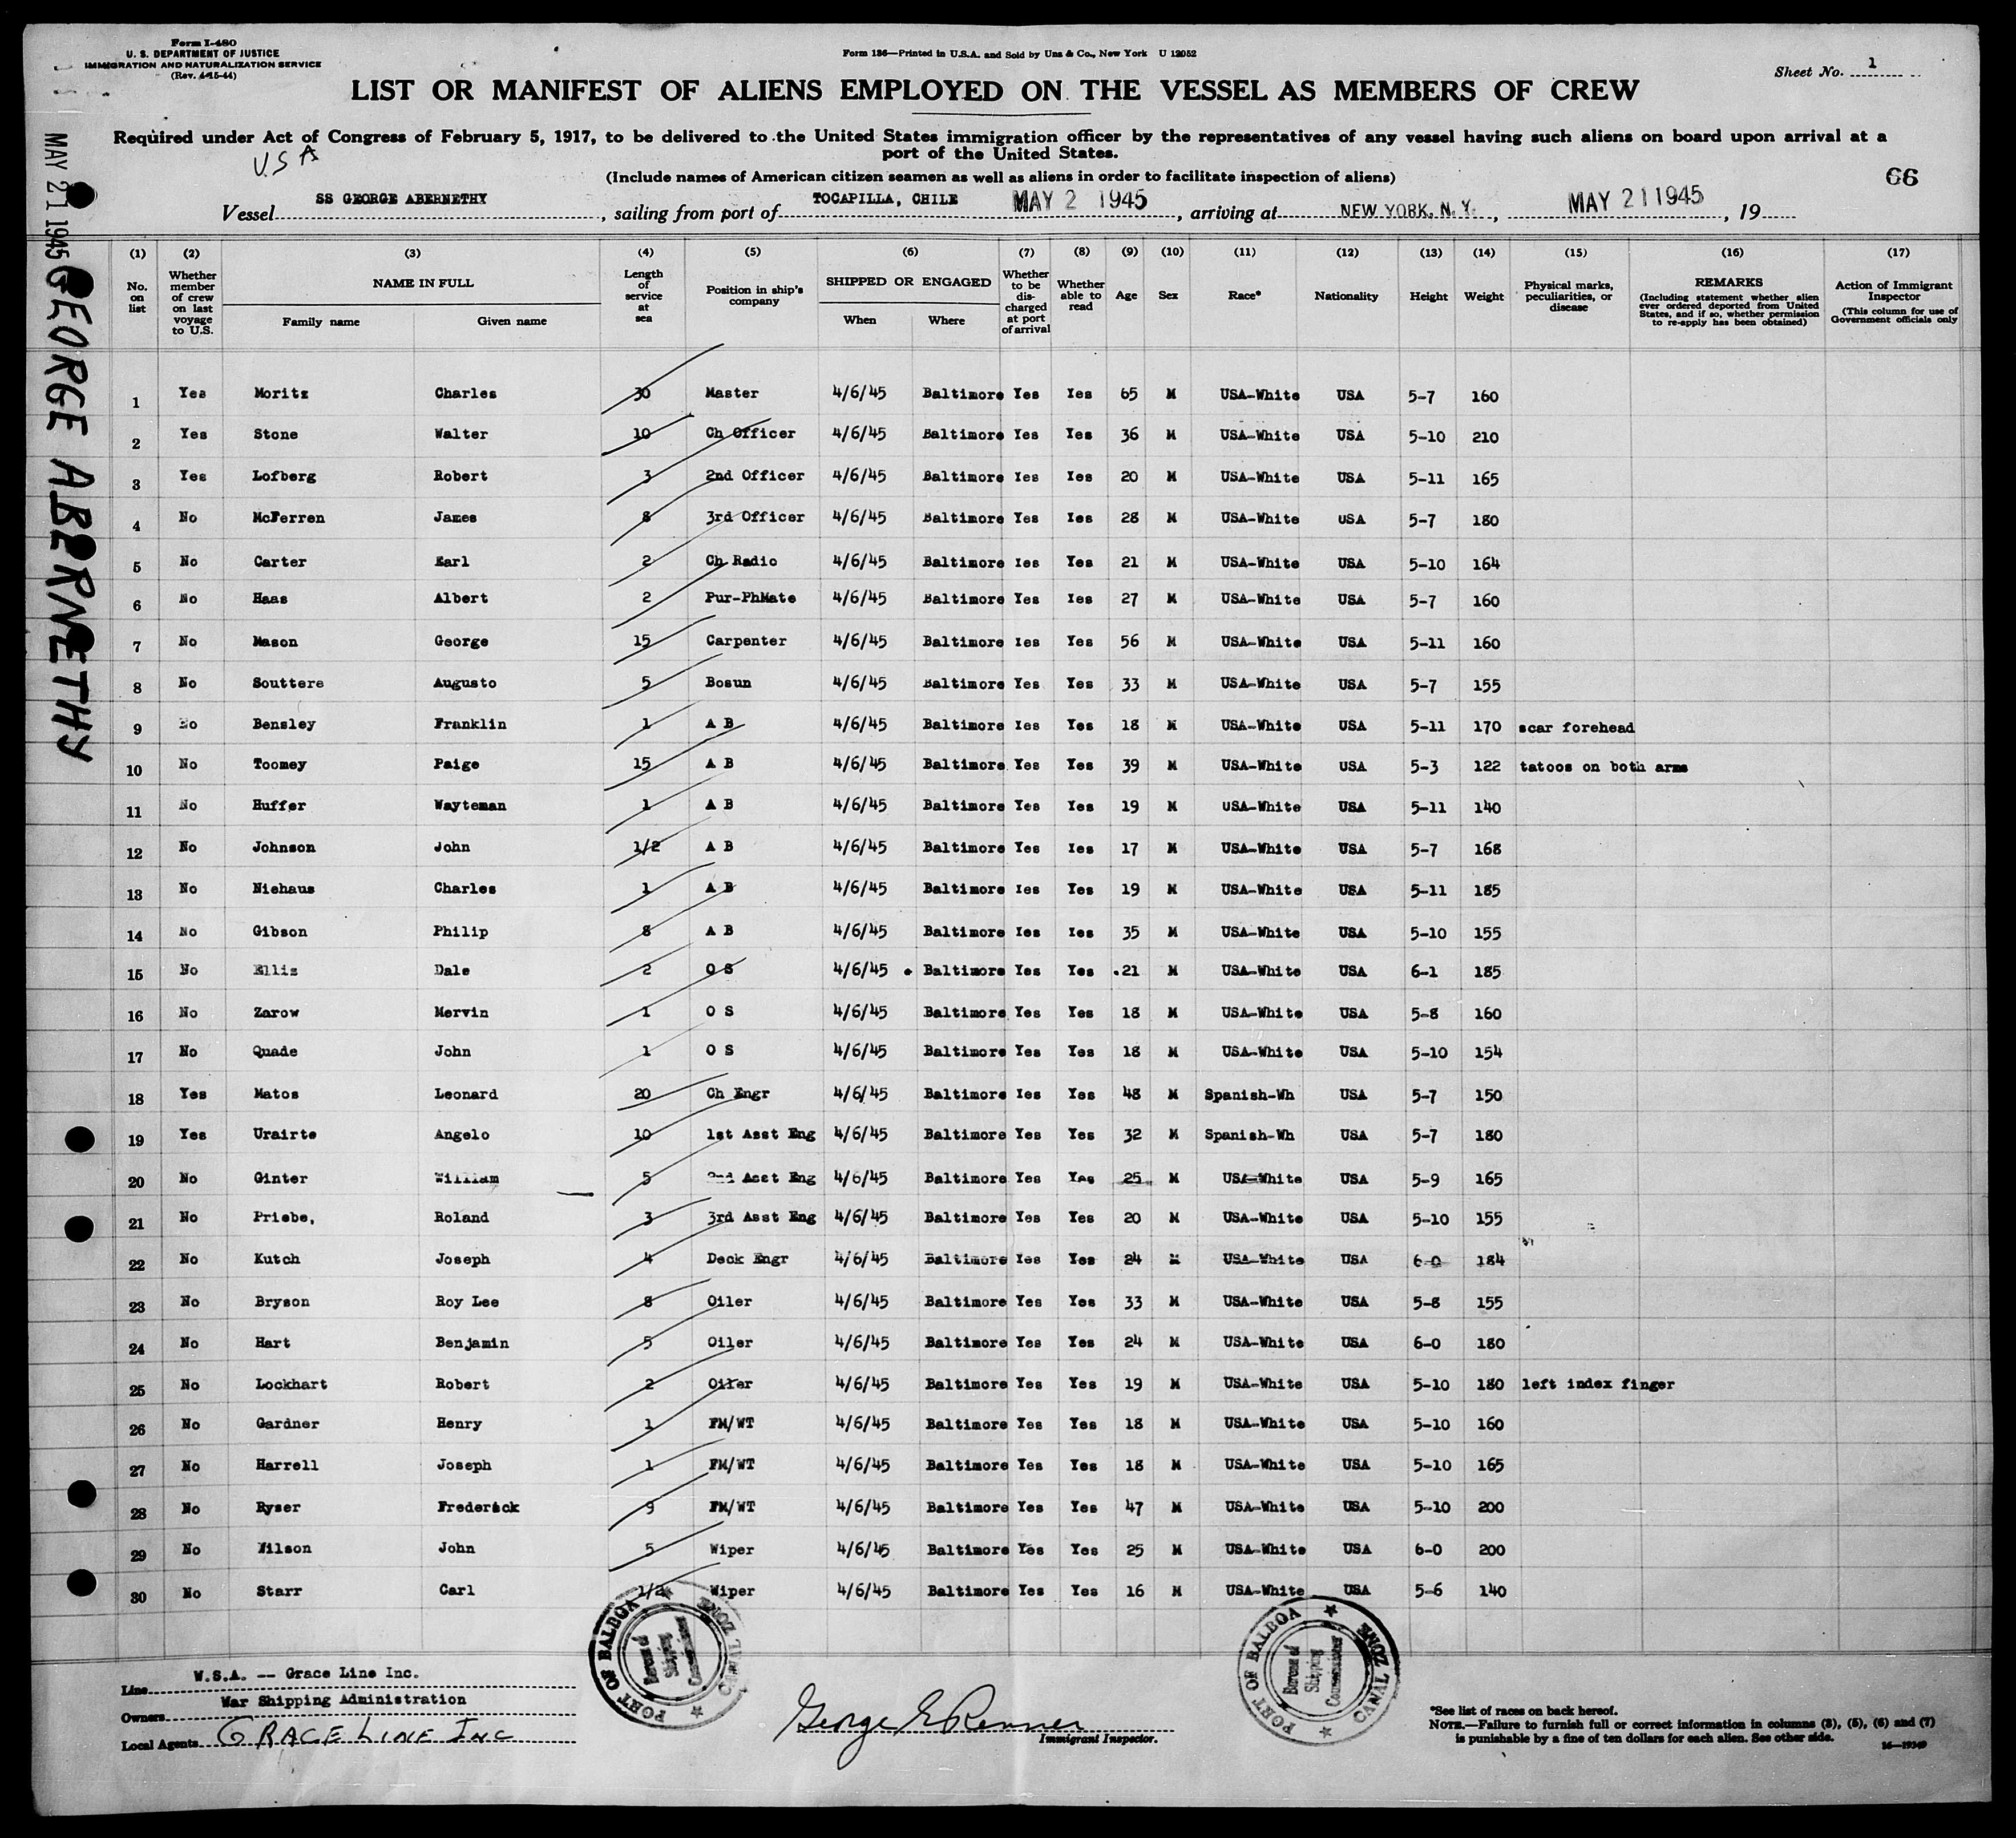 Form I-480
U. S. DEPARTMENT OF JUSTICE
IMMIGRATION AND NATURALIZATION SERVICE
(Rev. 4-15-44)
Form 136—Printed in U.S.A. and Sold by Unz & Co., New York U 12052
Sheet No. 1
LIST OR MANIFEST OF ALIENS EMPLOYED ON THE VESSEL AS MEMBERS OF CREW
Required under Act of Congress of February 5, 1917, to be delivered to the United States immigration officer by the representatives of any vessel having such aliens on board upon arrival at a
port of the United States.
USA
(Include names of American citizen seamen as well as aliens in order to facilitate inspection of aliens)
66
Vessel SS GEORGE ABERNETHY, sailing from port of TOCAPILLA, CHILE MAY 2 1945, arriving at NEW YORK, N. Y., MAY 21 1945, 19
MAY 21 1945 GEORGE ABERNETHY
(1) (2) (3) (4) (5) (6) (7) (8) (9) (10) (11) (12) (13) (14) (15) (16) (17)
No. on list
Whether member of crew on last voyage to U.S.
NAME IN FULL
Family name Given name
Length of service at sea
Position in ship's company
SHIPPED OR ENGAGED
When Where
Whether to be discharged at port of arrival
Whether able to read
Age
Sex
Race*
Nationality
Height
Weight
Physical marks, peculiarities, or disease
REMARKS
(Including statement whether alien ever ordered deported from United States, and if so, whether permission to re-apply has been obtained)
Action of Immigrant Inspector
(This column for use of Government officials only
1 Yes Moritz Charles 30 Master 4/6/45 Baltimore Yes Yes 65 M USA-White USA 5-7 160
2 Yes Stone Walter 10 Ch Officer 4/6/45 Baltimore Yes Yes 36 M USA-White USA 5-10 210
3 Yes Lofberg Robert 3 2nd Officer 4/6/45 Baltimore Yes Yes 20 M USA-White USA 5-11 165
4 No McFerren James 8 3rd Officer 4/6/45 Baltimore Yes Yes 28 M USA-White USA 5-7 180
5 No Carter Earl 2 Ch Radio 4/6/45 Baltimore Yes Yes 21 M USA-White USA 5-10 164
6 No Haas Albert 2 Pur-PhMate 4/6/45 Baltimore Yes Yes 27 M USA-White USA 5-7 160
7 No Mason George 15 Carpenter 4/6/45 Baltimore Yes Yes 56 M USA-White USA 5-11 160
8 No Souttere Augusto 5 Bosun 4/6/45 Baltimore Yes Yes 33 M USA-White USA 5-7 155
9 No Bensley Franklin 1 A B 4/6/45 Baltimore Yes Yes 18 M USA-White USA 5-11 170 scar forehead
10 No Toomey Paige 15 A B 4/6/45 Baltimore Yes Yes 39 M USA-White USA 5-3 122 tatoos on both arms
11 No Huffer Wayteman 1 A B 4/6/45 Baltimore Yes Yes 19 M USA-White USA 5-11 140
12 No Johnson John 1/2 A B 4/6/45 Baltimore Yes Yes 17 M USA-White USA 5-7 168
13 No Niehaus Charles 1 A B 4/6/45 Baltimore Yes Yes 19 M USA-White USA 5-11 185
14 No Gibson Philip 8 A B 4/6/45 Baltimore Yes Yes 35 M USA-White USA 5-10 155
15 No Ellis Dale 2 O S 4/6/45 Baltimore Yes Yes 21 M USA-White USA 6-1 185
16 No Zarow Mervin 1 O S 4/6/45 Baltimore Yes Yes 18 M USA-White USA 5-8 160
17 No Quade John 1 O S 4/6/45 Baltimore Yes Yes 18 M USA-White USA 5-10 154
18 Yes Matos Leonard 20 Ch Engr 4/6/45 Baltimore Yes Yes 48 M Spanish-Wh USA 5-7 150
19 Yes Urairte Angelo 10 1st Asst Eng 4/6/45 Baltimore Yes Yes 32 M Spanish-Wh USA 5-7 180
20 No Ginter William 5 2nd Asst Eng 4/6/45 Baltimore Yes Yes 25 M USA-White USA 5-9 165
21 No Priebe, Roland 3 3rd Asst Eng 4/6/45 Baltimore Yes Yes 20 M USA-White USA 5-10 155
22 No Kutch Joseph 4 Deck Engr 4/6/45 Baltimore Yes Yes 24 M USA-White USA 6-0 184
23 No Bryson Roy Lee 8 Oiler 4/6/45 Baltimore Yes Yes 33 M USA-White USA 5-8 155
24 No Hart Benjamin 5 Oiler 4/6/45 Baltimore Yes Yes 24 M USA-White USA 6-0 180
25 No Lockhart Robert 2 Oiler 4/6/45 Baltimore Yes Yes 19 M USA-White USA 5-10 180 left index finger
26 No Gardner Henry 1 FM/WT 4/6/45 Baltimore Yes Yes 18 M USA-White USA 5-10 160
27 No Harrell Joseph 1 FM/WT 4/6/45 Baltimore Yes Yes 18 M USA-White USA 5-10 165
28 No Ryser Frederick 9 FM/WT 4/6/45 Baltimore Yes Yes 47 M USA-White USA 5-10 200
29 No Wilson John 5 Wiper 4/6/45 Baltimore Yes Yes 25 M USA-White USA 6-0 200
30 No Starr Carl 1/2 Wiper 4/6/45 Baltimore Yes Yes 16 M USA-White USA 5-6 140
PORT OF BALBOA CANAL ZONE
Bureau of Shipping Commissioner
PORT OF BALBOA CANAL ZONE
Bureau of Shipping Commissioner
Line W.S.A. -- Grace Line Inc.
Owners War Shipping Administration
Local Agents GRACE LINE INC
George E Renner
Immigrant Inspector.
*See list of races on back hereof.
NOTE.—Failure to furnish full or correct information in columns (3), (5), (6) and (7)
is punishable by a fine of ten dollars for each alien. See other side.
16—19340